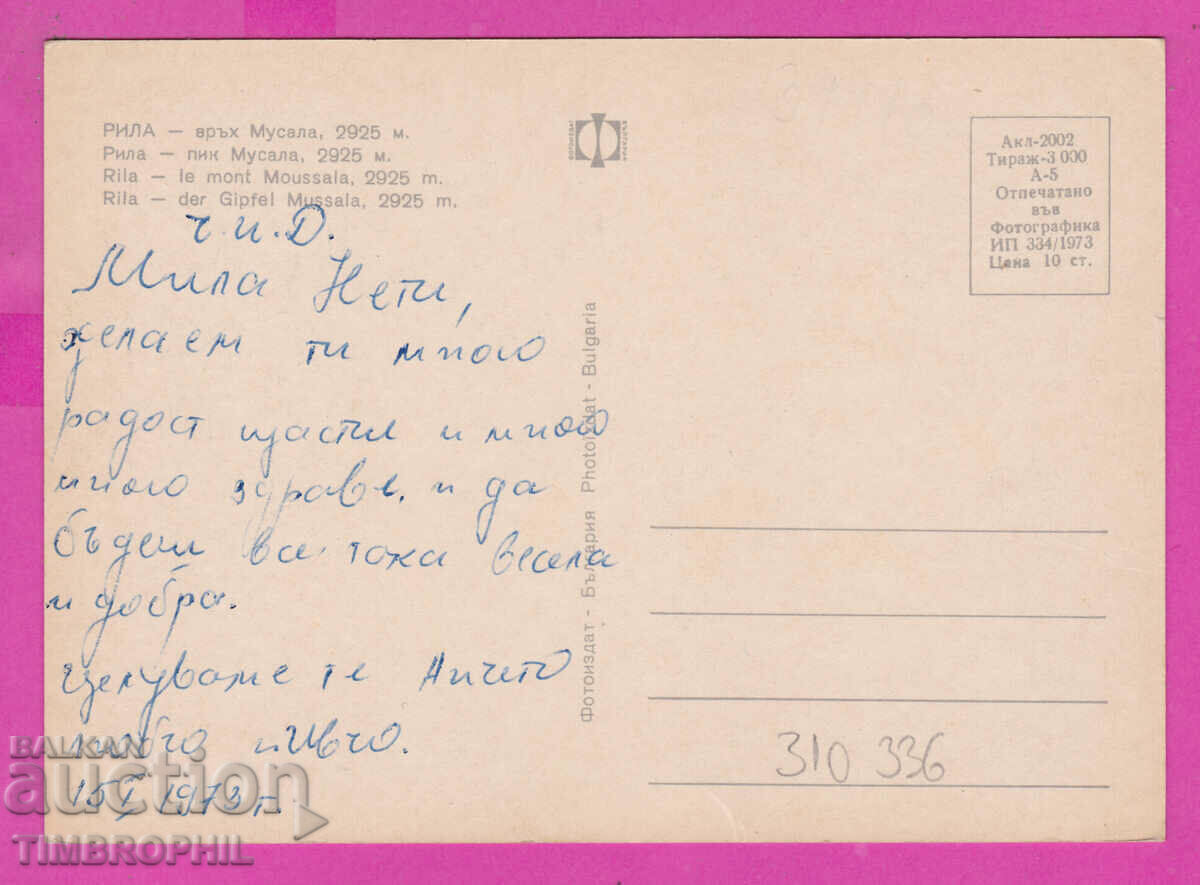 РИЛА — връх Мусала, 2925 м.
Рила — пик Мусала, 2925 м.
Rila — le mont Moussala, 2925 m.
Rila — der Gipfel Mussala, 2925 m.
ФОТОИЗДАТ
БЪЛГАРИЯ
Акл-2002
Тираж-3 000
А-5
Отпечатано
във
Фотографика
ИП 334/1973
Цена 10 ст.
Ч.И.Д.
Мила Нети,
желаем ти много
радост щастие и много
много здраве. и да
бъдеш все така весела
и добра.
Целуваме те Аничето
Любчо и Ивчо.
1973 г.
Фотоиздат - България Photoizdat - Bulgaria
310 336
BALKAN
auction
TIMBROPHIL